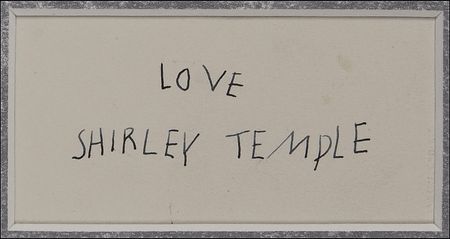 LOVE
SHIRLEY TEMPLE